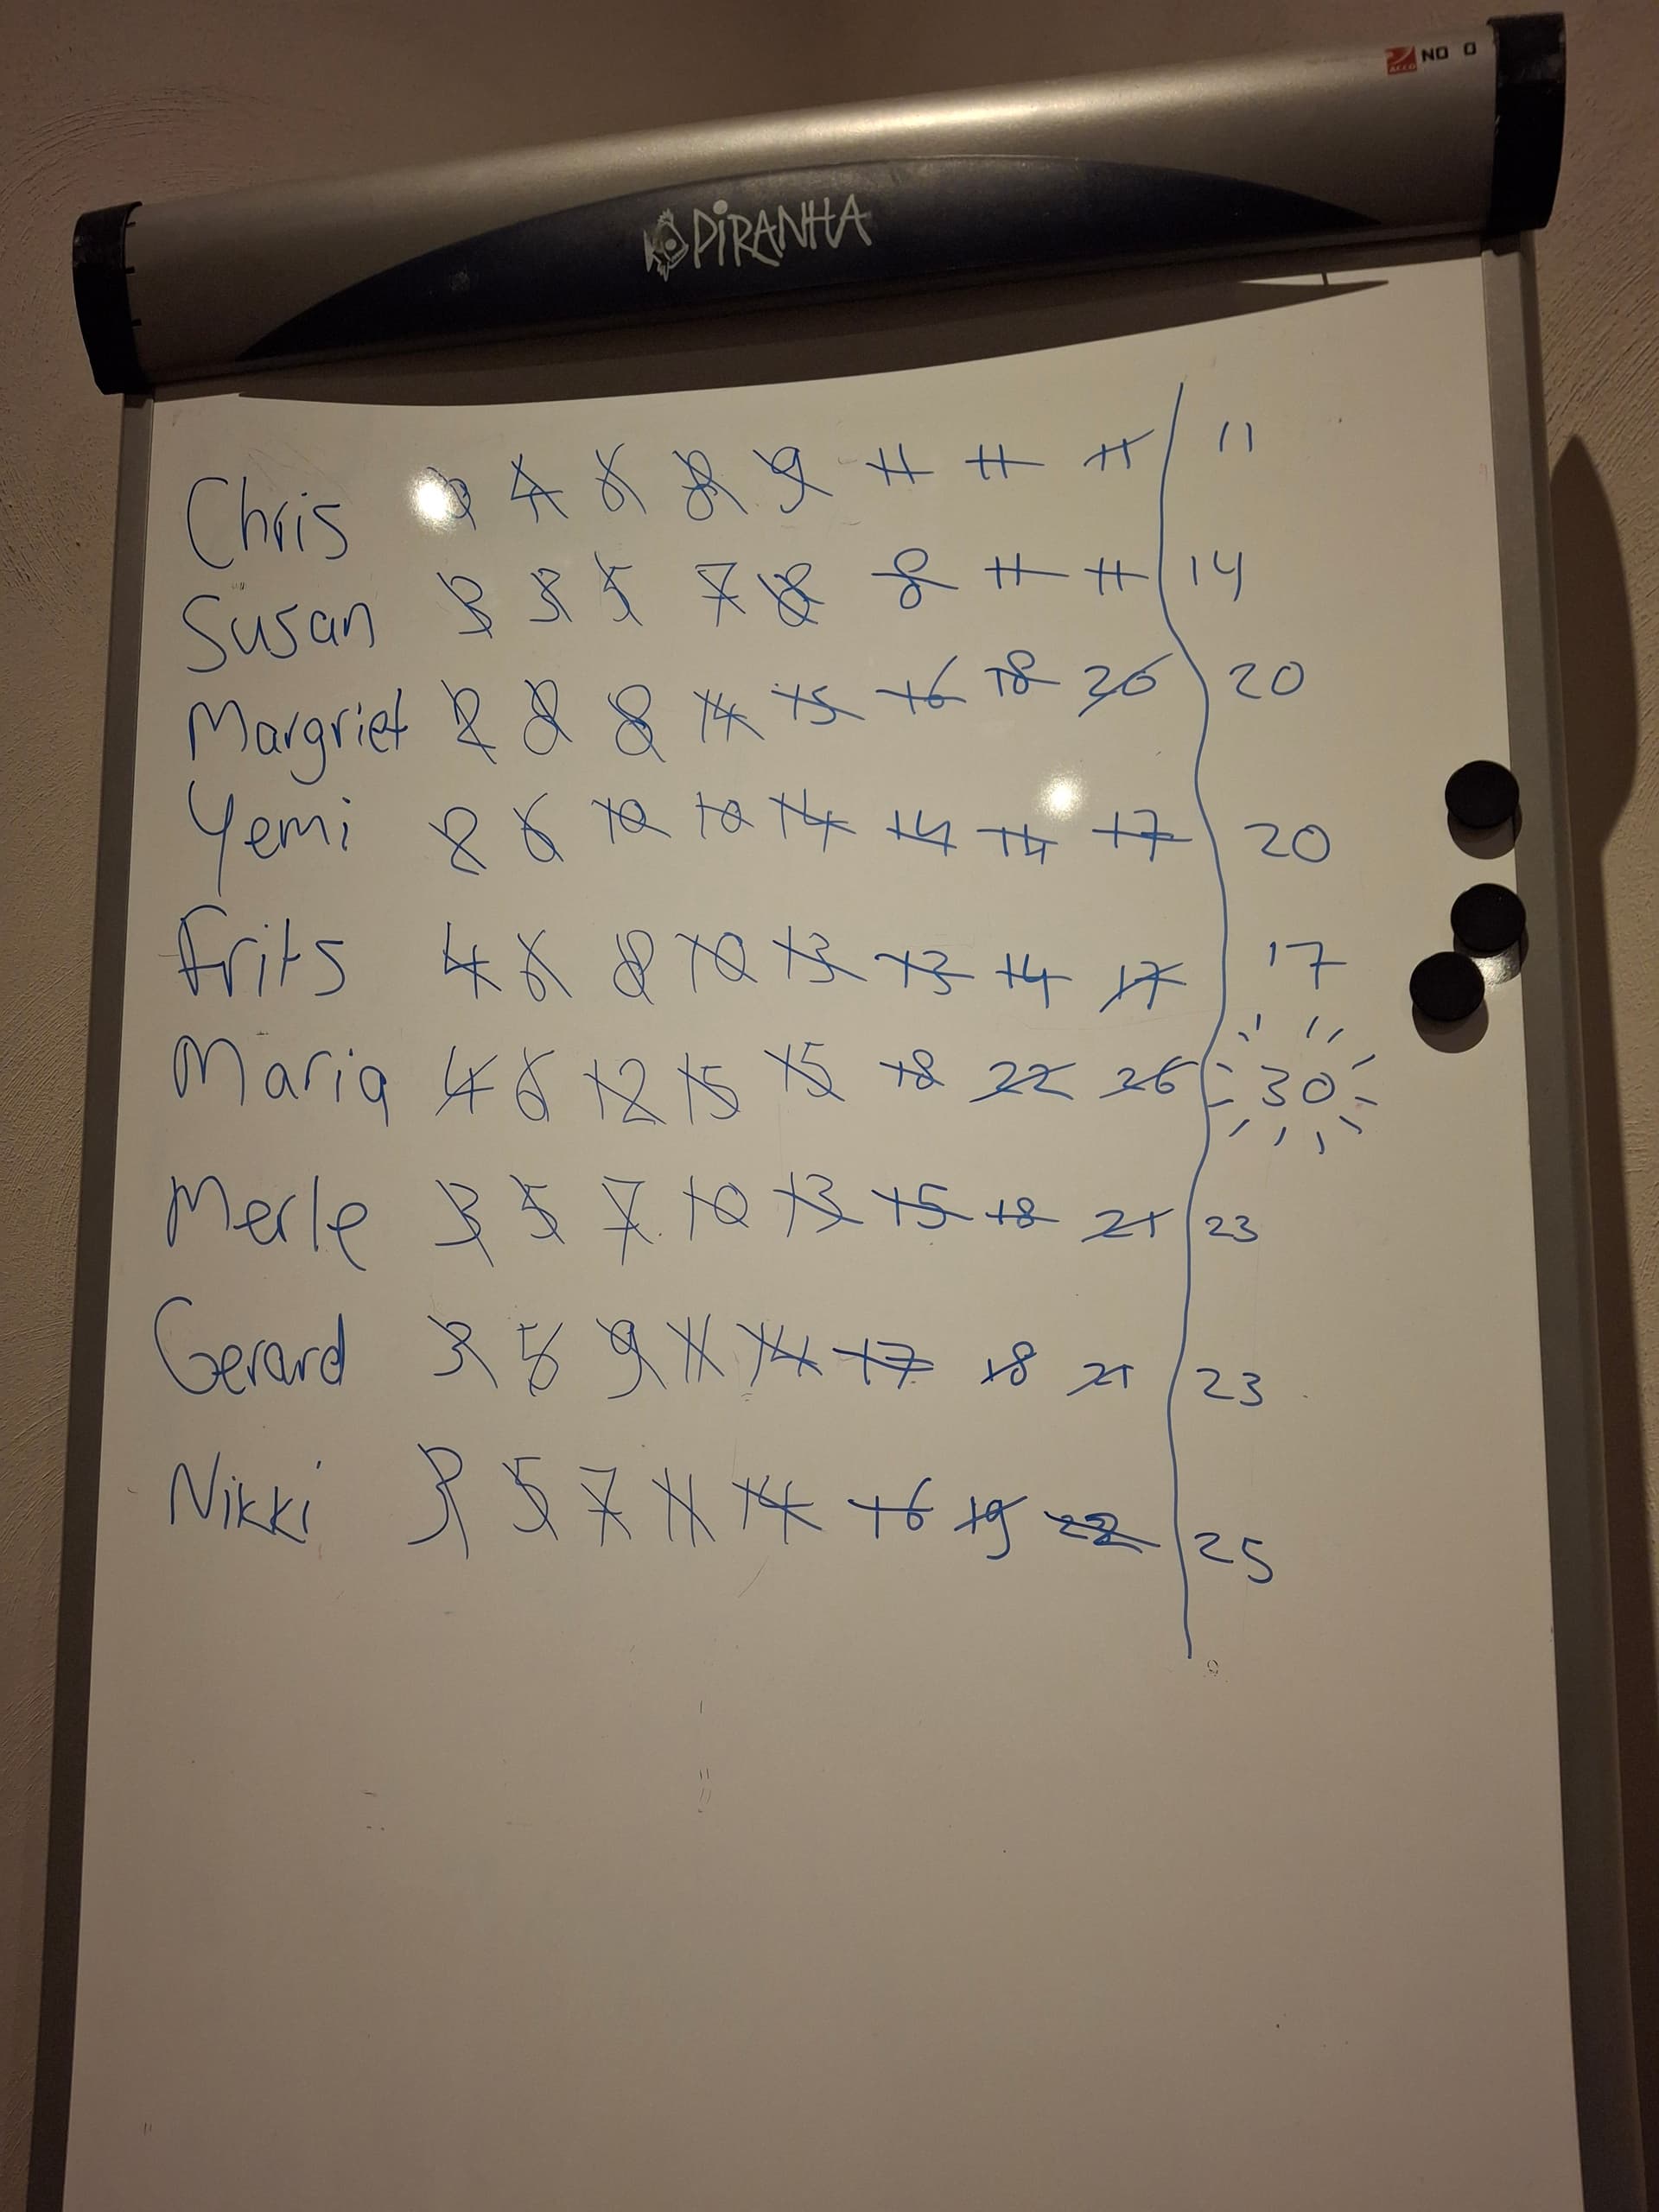 ACCO NO 0
PiRANHA
Chris 3 4 6 8 9 11 11 11 11
Susan 3 3 5 7 8 8 11 11 14
Margriet 2 8 8 14 15 16 18 20 20
Yemi 2 6 10 10 14 14 14 17 20
Frits 4 6 8 10 13 13 14 17 17
Maria 4 6 12 15 15 18 22 26 30
Merle 3 5 7 10 13 15 18 21 23
Gerard 3 5 9 11 14 17 18 21 23
Nikki 3 5 7 11 14 16 19 22 25